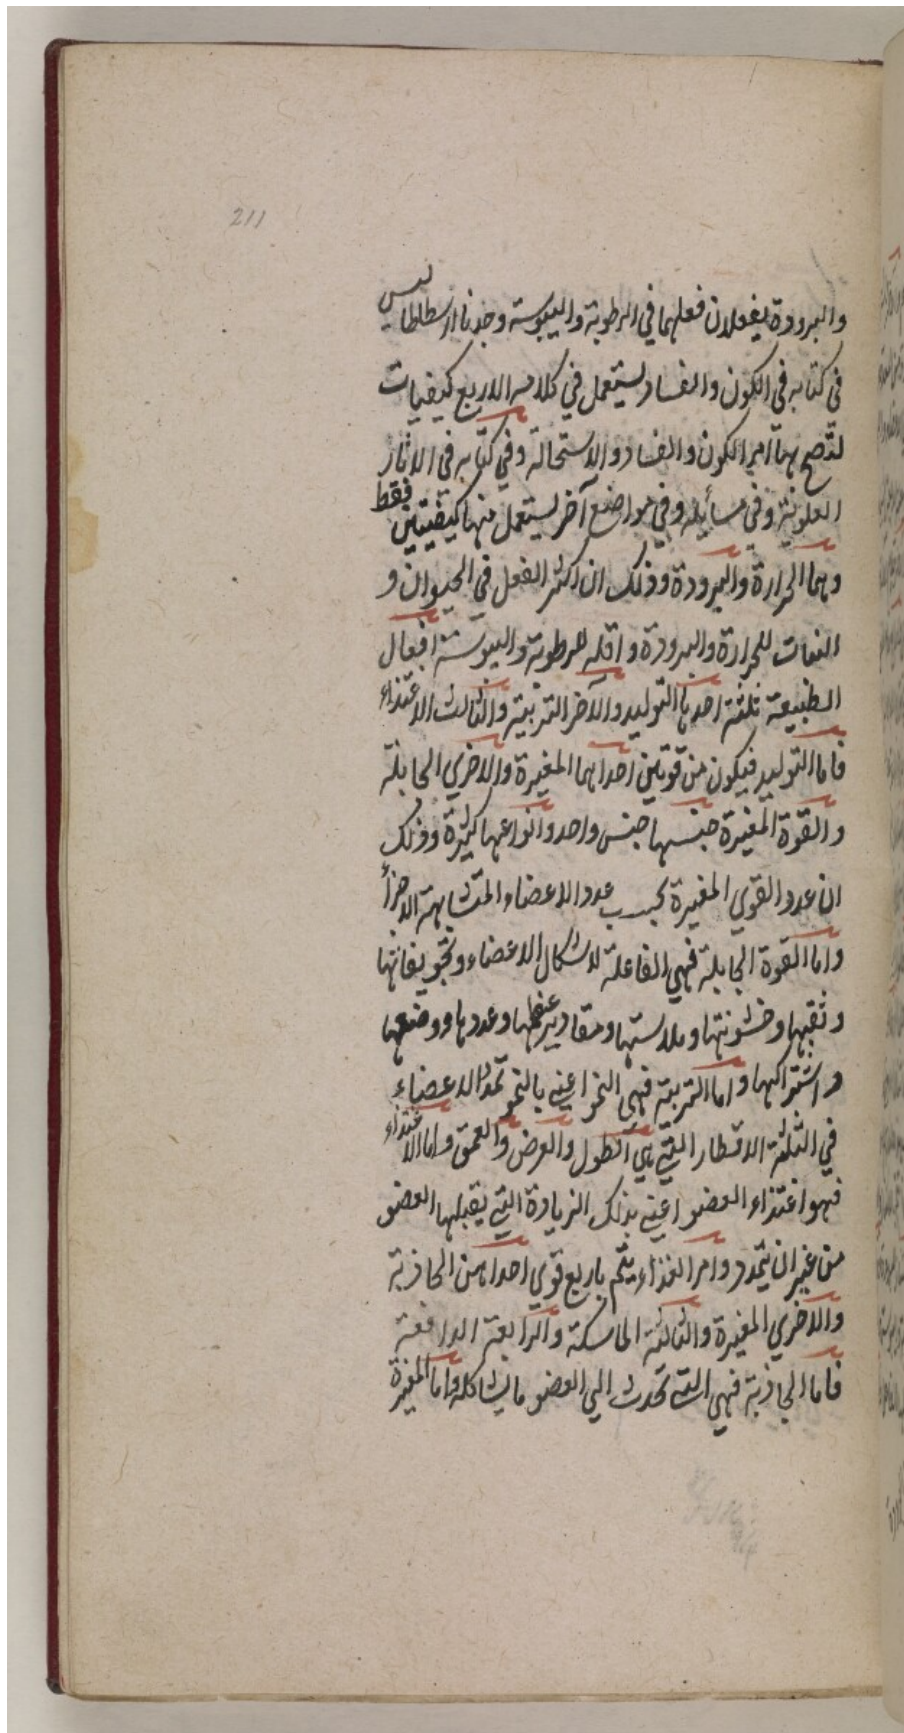 211
والبرودة يفعلان فعلهما في الرطوبة واليبوسة وجدنا ارسطاطاليس
في كتابه في الكون والفساد يستعمل في كلامه الاربع كيفيات
لتصح بها امر الكون والفساد والاستحالة وفي كتابه في الاثار
العلوية وفي مسائله وفي مواضع آخر يستعمل منها كيفيتين فقط
وهما الحرارة والبرودة وذلك ان اكثر الفعل في الحيوان و
النبات للحرارة والبرودة واقله للرطوبة واليبوسة افعال
الطبيعة ثلثة احدها التوليد والآخر التربية والثالث الاغتذاء
فاما التوليد فيكون من قوتين احداهما المغيرة والاخري الجابلة
والقوة المغيرة جنسها جنس واحد وانواعها كثيرة وذلك
ان عدد القوي المغيرة بحسب عدد الاعضاء المتشابهة الاجزأ
واما القوة الجابلة فهي الفاعلة لاشكال الاعضاء وتجويفاتها
وثقبها وخشونتها وملاستها ومقادير عظمها وعددها ووضعها
واشتراكها واما التربية فهي النمو اعني بالنمو تمدد الاعضاء
في الثلثة الاقطار التي هي الطول والعرض والعمق واما الاغتذاء
فهو اغتذاء العضو اعني بذلك الزيادة التي يقبلها العضو
من غير ان يتمدد وامر الغذاء يتم باربع قوي احداهن الجاذبة
والاخري المغيرة والثالثة الماسكة والرابعة الدافعة
فاما الجاذبة فهي التي تحدث الي العضو ما يشاكله واما المغيرة